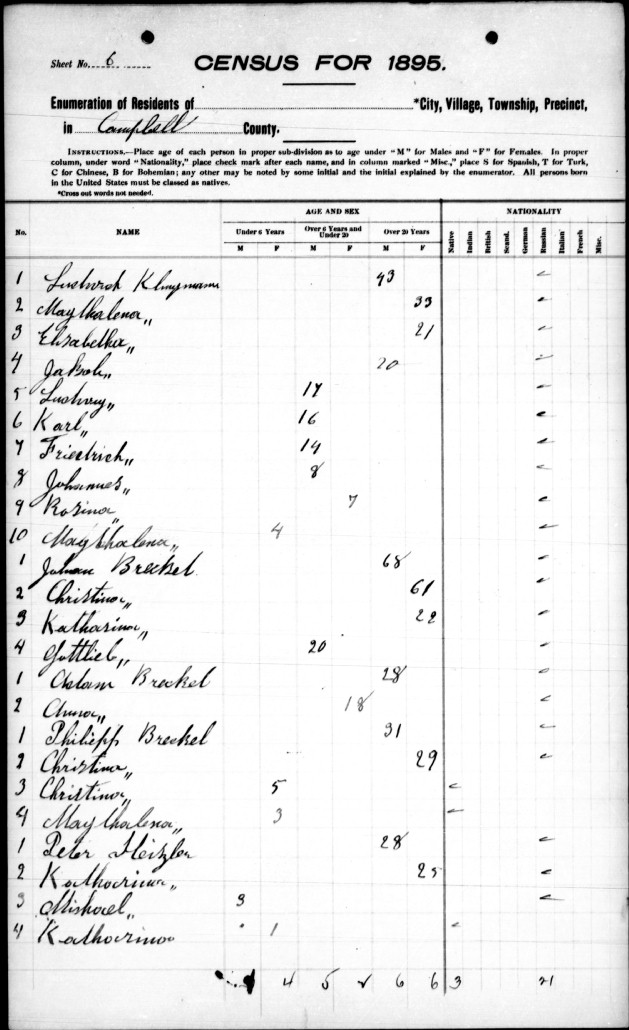 Sheet No. 6
CENSUS FOR 1895.
Enumeration of Residents of *City, Village, Township, Precinct,
in Campbell County.
INSTRUCTIONS.—Place age of each person in proper sub-division as to age under "M" for Males and "F" for Females. In proper
column, under word "Nationality," place check mark after each name, and in column marked "Misc.," place S for Spanish, T for Turk,
C for Chinese, B for Bohemian; any other may be noted by some initial and the initial explained by the enumerator. All persons born
in the United States must be classed as natives.
*Cross out words not needed.
AGE AND SEX NATIONALITY
No. NAME Under 6 Years Over 6 Years and Under 20 Over 20 Years Native Indian British Scand. German Russian Italian French Misc.
M F M F M F
1 43 ✓
2 Maythalena " 33 ✓
3 Elisabetha " 21 ✓
4 Jakob " 20 ✓
5 Ludwig " 17 ✓
6 Karl " 16 ✓
7 Friedrich " 14 ✓
8 Johannes " 8 ✓
9 Rosina " 7 ✓
10 Maythalena " 4 ✓
1 Johan Breckel 68 ✓
2 Christina " 61 ✓
3 Katharina " 22 ✓
4 Gottlieb " 20 ✓
1 Adam Breckel 28 ✓
2 Anna " 18 ✓
1 Philipp Breckel 31 ✓
2 Christina " 29 ✓
3 Christina " 5 ✓
4 Maythalena " 3 ✓
1 Peter Heizler 28 ✓
2 Katharina " 25 ✓
3 Michael " 3 ✓
4 Katharina 1 ✓
4 5 2 6 6 3 21